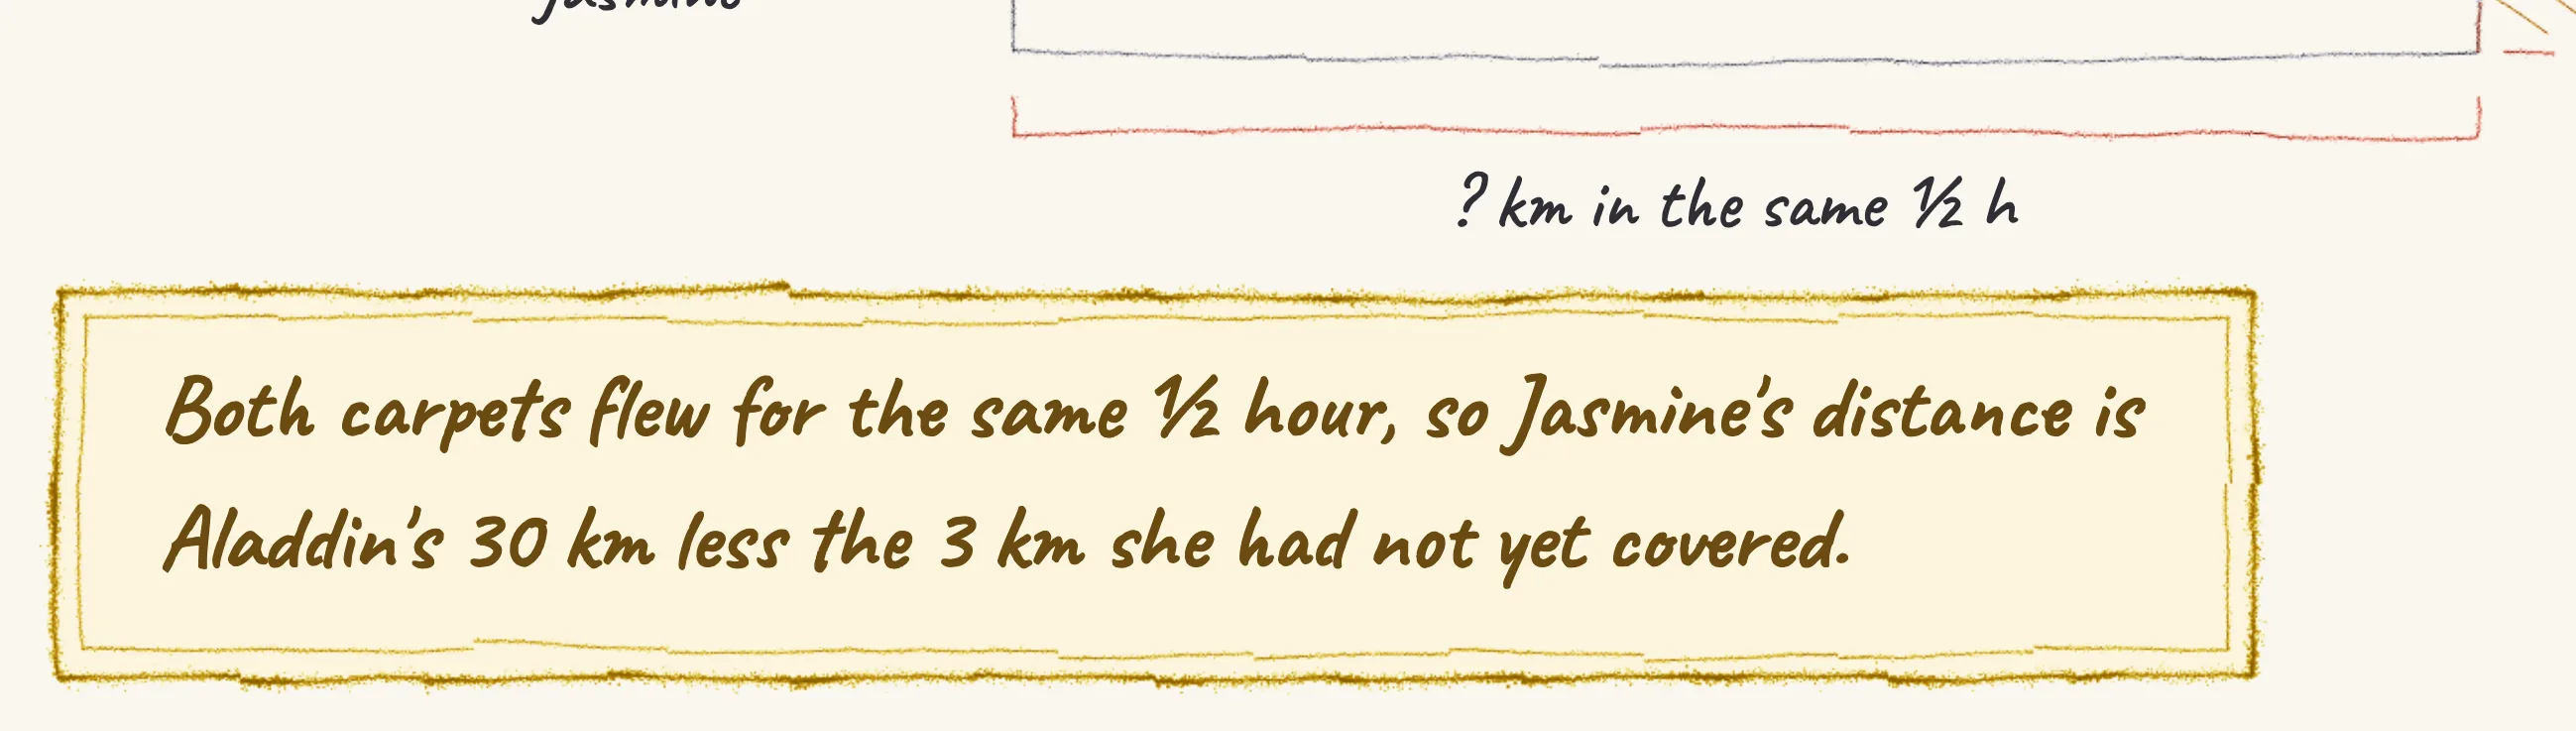 Jasmine
? km in the same ½ h
Both carpets flew for the same ½ hour, so Jasmine's distance is
Aladdin's 30 km less the 3 km she had not yet covered.